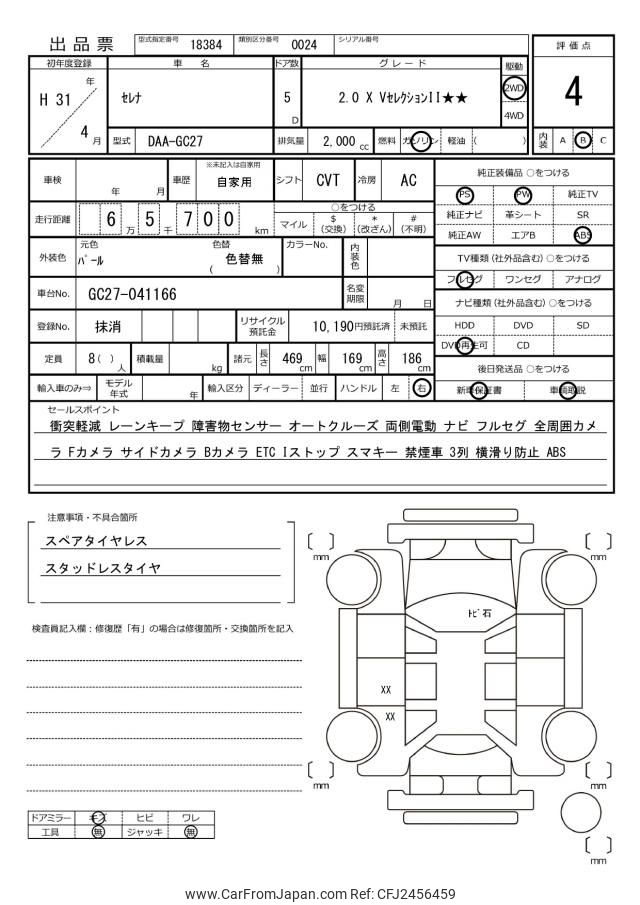 出品票 型式指定番号 18384 類別区分番号 0024 シリアル番号
評価点
4
内装 A B C
初年度登録 車名 ドア数 グレード 駆動
H 31 年 4 月
セレナ 5 D 2.0 X VセレクションII★★ 2WD 4WD
型式 DAA-GC27 排気量 2,000 cc 燃料 ガソリン 軽油 ( )
車検 年 月 車歴 ※未記入は自家用 自家用 シフト CVT 冷房 AC
走行距離 6 万 5 千 7 0 0 km
○をつける
マイル $ (交換) * (改ざん) # (不明)
外装色 元色 パール 色替 ( 色替無 ) カラーNo. 内装色
車台No. GC27-041166 名変期限 月 日
登録No. 抹消 リサイクル預託金 10,190円預託済 未預託
定員 8( ) 人 積載量 kg 諸元 長さ 469 cm 幅 169 cm 高さ 186 cm
輸入車のみ⇒ モデル年式 年 輸入区分 ディーラー 並行 ハンドル 左 右
純正装備品 ○をつける
PS PW 純正TV
純正ナビ 革シート SR
純正AW エアB ABS
TV種類 (社外品含む) ○をつける
フルセグ ワンセグ アナログ
ナビ種類 (社外品含む) ○をつける
HDD DVD SD
DVD再生可 CD
後日発送品 ○をつける
新車保証書 車輌取説
セールスポイント
衝突軽減 レーンキープ 障害物センサー オートクルーズ 両側電動 ナビ フルセグ 全周囲カメ
ラ Fカメラ サイドカメラ Bカメラ ETC Iストップ スマキー 禁煙車 3列 横滑り防止 ABS
注意事項・不具合箇所
スペアタイヤレス
スタッドレスタイヤ
検査員記入欄：修復歴「有」の場合は修復箇所・交換箇所を記入
[ ] mm
[ ] mm
トビ石
XX
XX
[ ] mm
[ ] mm
[ ] mm
ドアミラー キズ ヒビ ワレ
工具 無 ジャッキ 無
www.CarFromJapan.com Ref: CFJ2456459